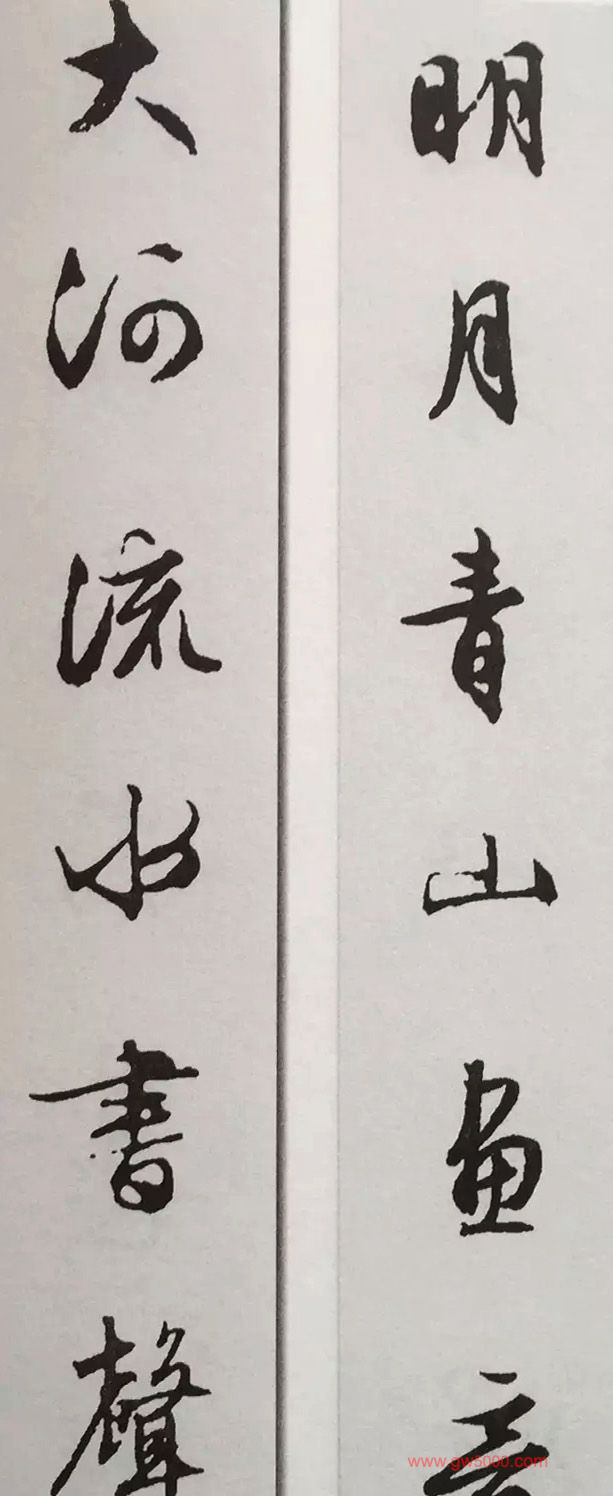 明月青山畫
大河流水書聲
www.gw5000.com